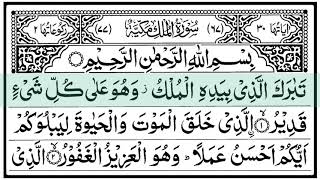 اٰیَاتُهَا ٣٠ (٦٧) سُوْرَةُ الْمُلْكِ مَكِّیَّةٌ (٧٧) رُكُوْعَاتُهَا ٢
بِسْمِ اللهِ الرَّحْمٰنِ الرَّحِیْمِ
تَبٰرَكَ الَّذِیْ بِیَدِهِ الْمُلْكُ ز وَهُوَ عَلٰی كُلِّ شَیْءٍ
قَدِیْرُ ۙ﴿١﴾ الَّذِیْ خَلَقَ الْمَوْتَ وَالْحَیٰوةَ لِیَبْلُوَكُمْ
اَیُّكُمْ اَحْسَنُ عَمَلًا ؕ وَهُوَ الْعَزِیْزُ الْغَفُوْرُ ۙ﴿٢﴾ الَّذِیْ